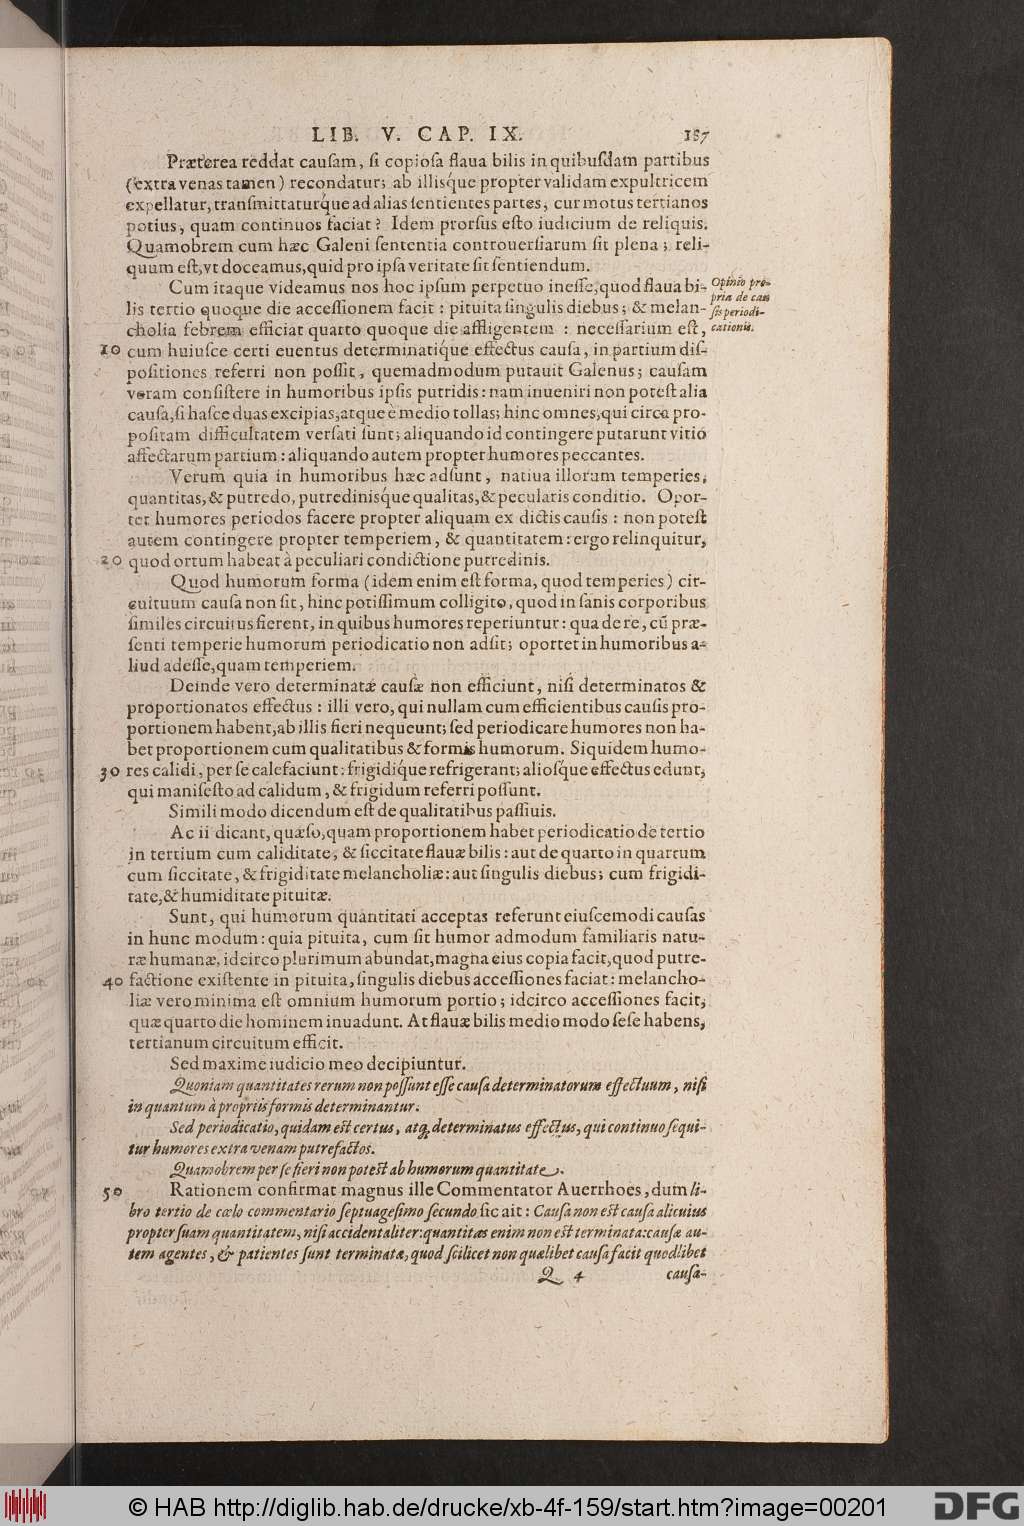 LIB. V. CAP. IX. 187
Præterea reddat cauſam, ſi copioſa flaua bilis in quibuſdam partibus
(extra venas tamen) recondatur; ab illiſque propter validam expultricem
expellatur, tranſmittaturque ad alias ſentientes partes, cur motus tertianos
potius, quam continuos faciat? Idem prorſus eſto iudicium de reliquis.
Quamobrem cum hæc Galeni ſententia controuerſiarum ſit plena; reli-
quum eſt, vt doceamus, quid pro ipſa veritate ſit ſentiendum.
Cum itaque videamus nos hoc ipſum perpetuo ineſſe, quod flaua bi-
lis tertio quoque die acceſſionem facit: pituita ſingulis diebus; & melan-
cholia febrem efficiat quarto quoque die affligentem: neceſſarium eſt,
10 cum huiuſce certi euentus determinatique effectus cauſa, in partium diſ-
poſitiones referri non poſſit, quemadmodum putauit Galenus; cauſam
veram conſiſtere in humoribus ipſis putridis: nam inueniri non poteſt alia
cauſa, ſi haſce duas excipias, atque e medio tollas; hinc omnes, qui circa pro-
poſitam difficultatem verſati ſunt; aliquando id contingere putarunt vitio
affectarum partium: aliquando autem propter humores peccantes.
Opinio pro-
pria de cau
ſis periodi-
cationis.
Verum quia in humoribus hæc adſunt, natiua illorum temperies,
quantitas, & putredo, putrediniſque qualitas, & pecularis conditio. Opor-
tet humores periodos facere propter aliquam ex dictis cauſis: non poteſt
autem contingere propter temperiem, & quantitatem: ergo relinquitur,
20 quod ortum habeat à peculiari condictione putredinis.
Quod humorum forma (idem enim eſt forma, quod temperies) cir-
cuituum cauſa non ſit, hinc potiſſimum colligito, quod in ſanis corporibus
ſimiles circuitus fierent, in quibus humores reperiuntur: qua de re, cũ præ-
ſenti temperie humorum periodicatio non adſit; oportet in humoribus a-
liud adeſſe, quam temperiem.
Deinde vero determinatæ cauſæ non efficiunt, niſi determinatos &
proportionatos effectus: illi vero, qui nullam cum efficientibus cauſis pro-
portionem habent, ab illis fieri nequeunt; ſed periodicare humores non ha-
bet proportionem cum qualitatibus & formis humorum. Siquidem humo-
30 res calidi, per ſe calefaciunt: frigidique refrigerant; alioſque effectus edunt,
qui manifeſto ad calidum, & frigidum referri poſſunt.
Simili modo dicendum eſt de qualitatibus paſſiuis.
Ac ii dicant, quæſo, quam proportionem habet periodicatio de tertio
in tertium cum caliditate, & ſiccitate flauæ bilis: aut de quarto in quartum
cum ſiccitate, & frigiditate melancholiæ: aut ſingulis diebus; cum frigidi-
tate, & humiditate pituitæ.
Sunt, qui humorum quantitati acceptas referunt eiuſcemodi cauſas
in hunc modum: quia pituita, cum ſit humor admodum familiaris natu-
ræ humanæ, idcirco plurimum abundat, magna eius copia facit, quod putre-
40 factione exiſtente in pituita, ſingulis diebus acceſſiones faciat: melancho-
liæ vero minima eſt omnium humorum portio; idcirco acceſſiones facit,
quæ quarto die hominem inuadunt. At flauæ bilis medio modo ſeſe habens,
tertianum circuitum efficit.
Sed maxime iudicio meo decipiuntur.
Quoniam quantitates rerum non poſſunt eſſe cauſa determinatorum effectuum, niſi
in quantum à propriis formis determinantur.
Sed periodicatio, quidam eſt certus, atq; determinatus effectus, qui continuo ſequi-
tur humores extra venam putrefactos.
Quamobrem per ſe fieri non poteſt ab humorum quantitate.
50 Rationem confirmat magnus ille Commentator Auerrhoes, dum li-
bro tertio de cœlo commentario ſeptuageſimo ſecundo ſic ait: Cauſa non eſt cauſa alicuius
propter ſuam quantitatem, niſi accidentaliter: quantitas enim non eſt terminata: cauſæ au-
tem agentes, & patientes ſunt terminatæ, quod ſcilicet non quælibet cauſa facit quodlibet
Q 4 cauſa-
© HAB http://diglib.hab.de/drucke/xb-4f-159/start.htm?image=00201
DFG